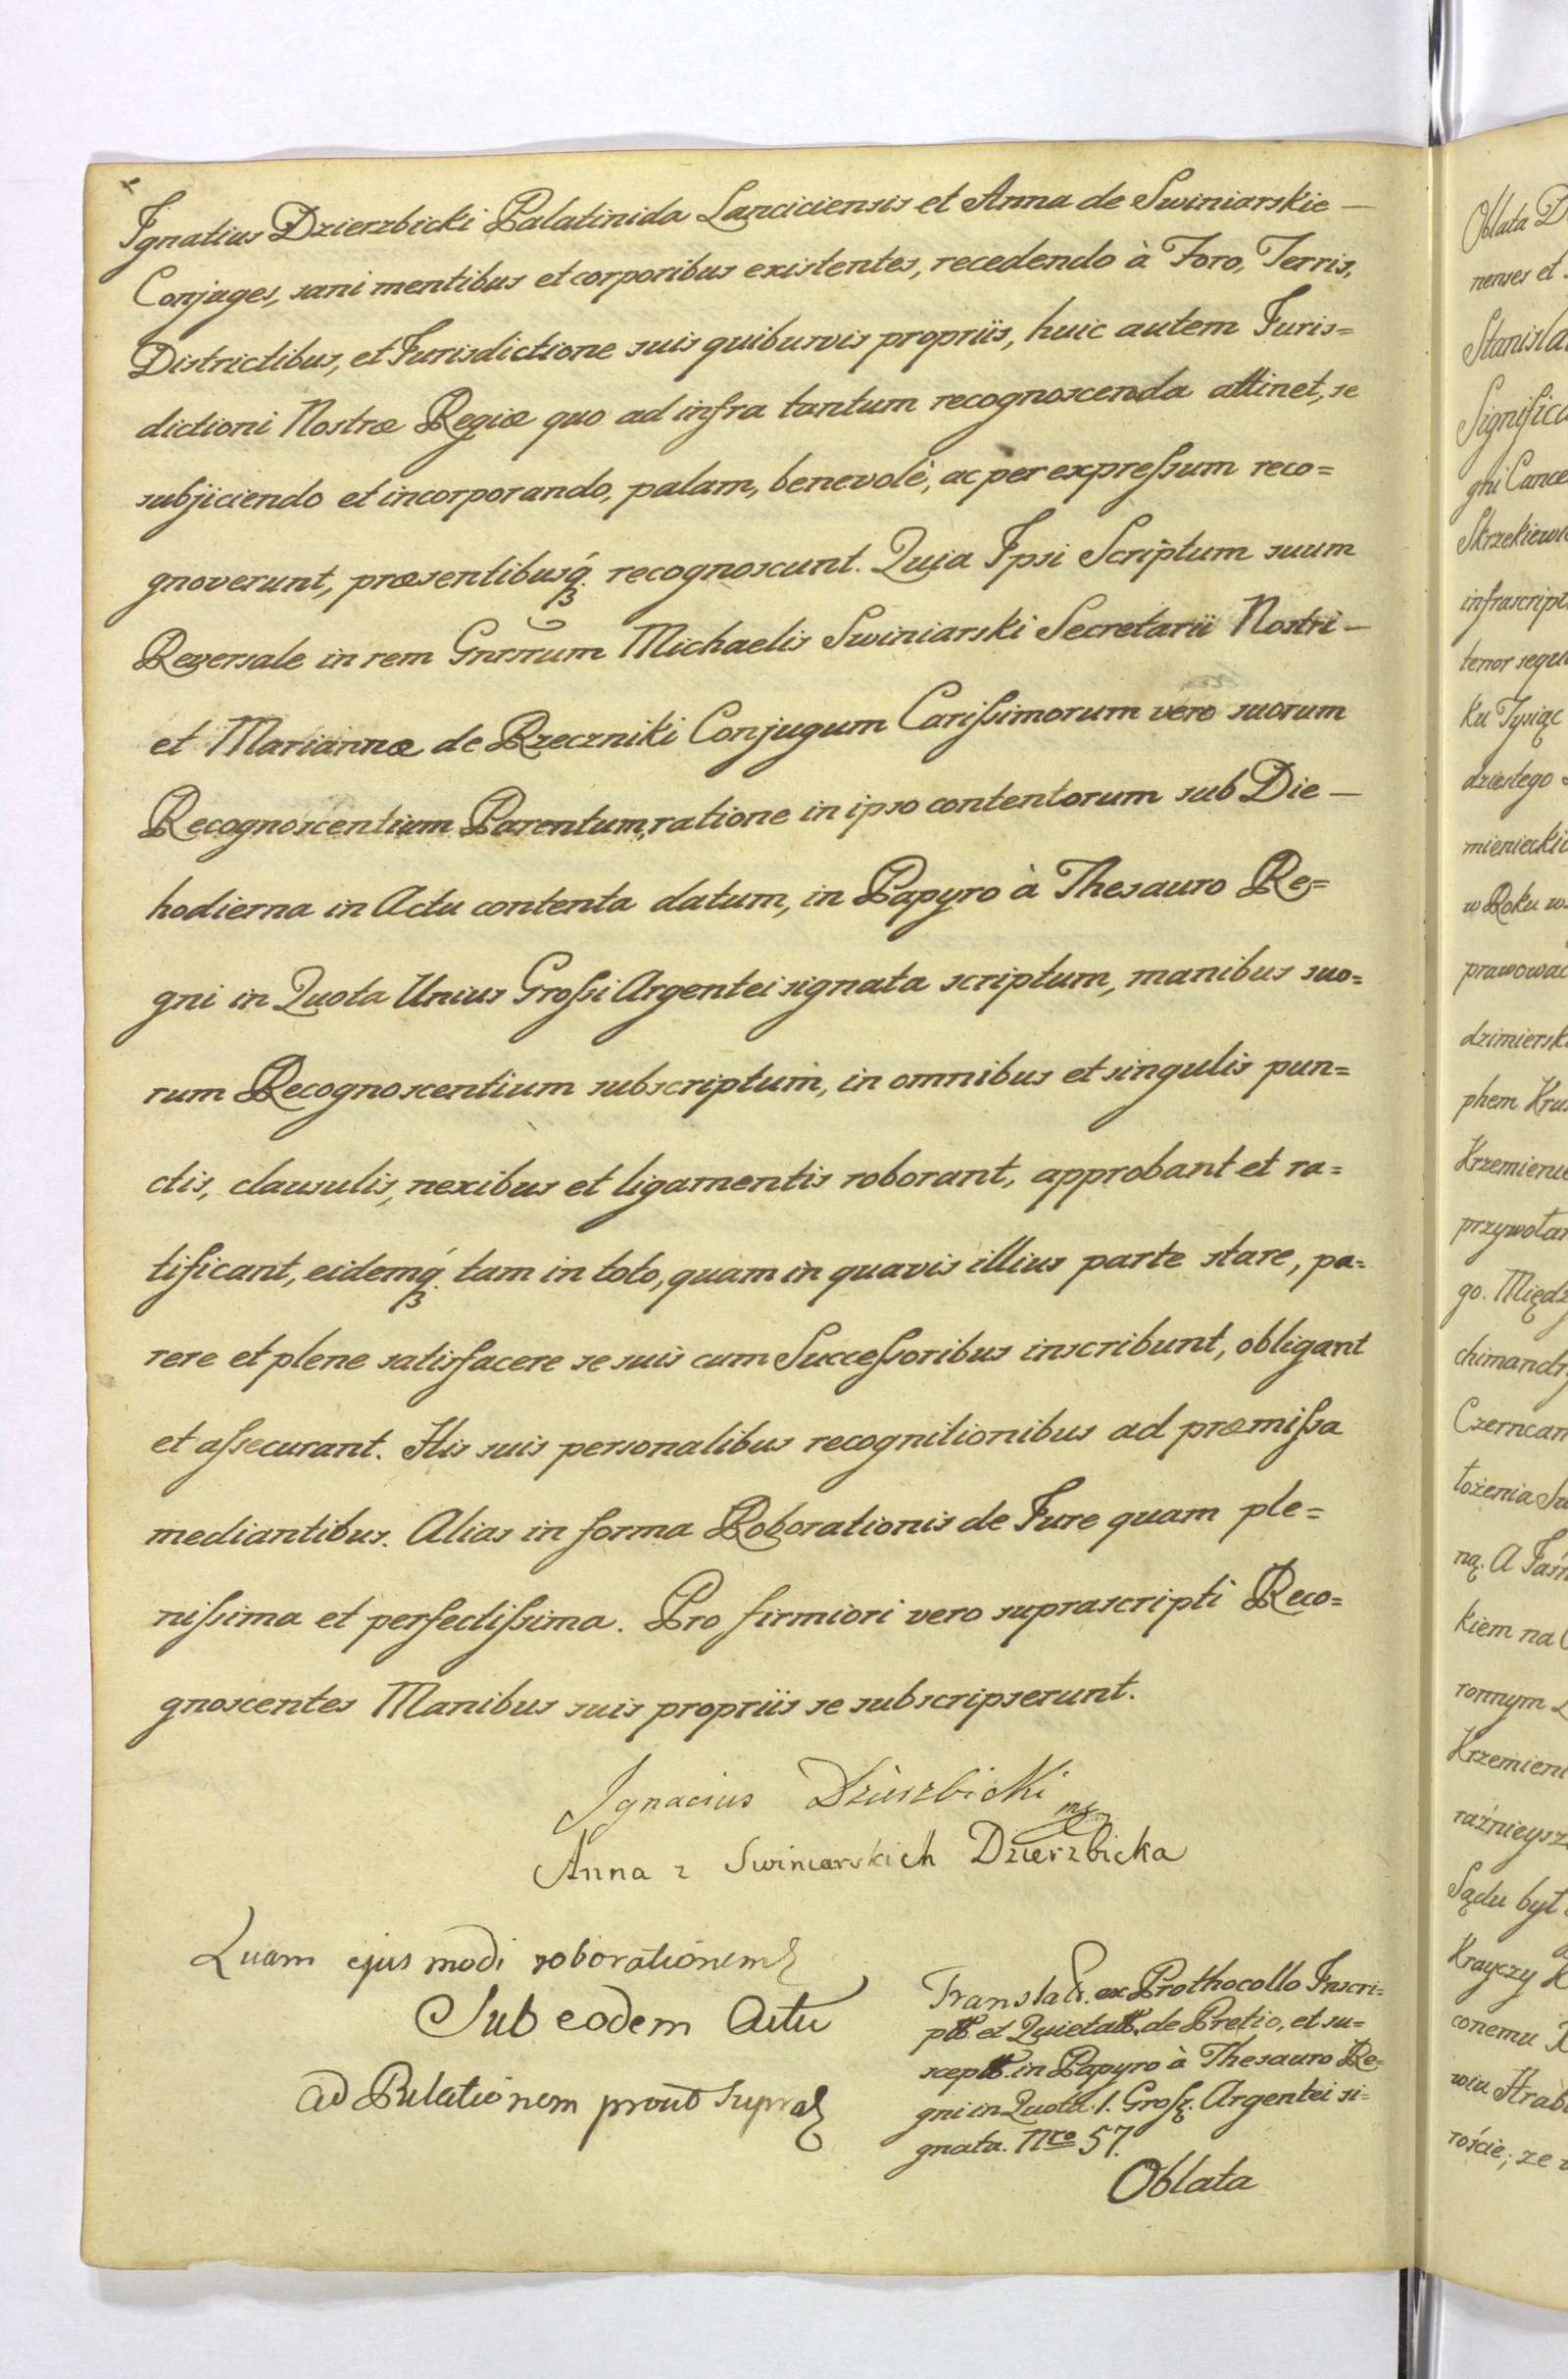 Ignatius Dzierzbicki Palatinida Lanciciensis et Anna de Swiniarskie —
Conjuges, sani mentibus et corporibus existentes, recedendo à Foro, Terris,
Districtibus, et Jurisdictione suis quibusvis propriis, huic autem Juris=
dictioni Nostræ Regiæ quo ad infra tantum recognoscenda attinet, se
subjiciendo et incorporando, palam, benevolè, ac per expreſsum reco=
gnoverunt, præsentibusq́ꝫ recognoscunt. Quia Ipsi Scriptum suum
Reversale in rem Gnrsrum Michaelis Swiniarski Secretarii Nostri —
et Mariannæ de Rzeczniki Conjugum Cariſsimorum vero suorum
Recognoscentium Parentum, ratione in ipso contentorum sub Die —
hodierna in Actu contenta datum, in Papyro à Thesauro Re=
gni in Quota Unius Groſsi Argentei signata scriptum, manibus suo=
rum Recognoscentium subscriptum, in omnibus et singulis pun=
ctis, clausulis, nexibus et ligamentis roborant, approbant et ra=
tificant, eidemq́ꝫ tam in toto, quam in quavis illius parte stare, pa=
rere et plene satisfacere se suis cum Succeſsoribus inscribunt, obligant
et aſsecurant. His suis personalibus recognitionibus ad præmiſsa
mediantibus. Alias in forma Roborationis de Jure quam ple=
niſsima et perfectiſsima. Pro firmiori vero suprascripti Reco=
gnoscentes Manibus suis propriis se subscripserunt.
Ignacius Dzierzbicki mp
Anna z Swiniarskich Dzierzbicka
Quam ejus modi roborationem
Sub eodem Actu
ad Relationem prout supra
Translat. ex Prothocollo Inscri=
ptt. et Quietatt. de Pretio, et su=
scept. in Papyro à Thesauro Re=
gni in Quota. 1. Groſz. Argentei si=
gnata. Nro 57.
Oblata
Oblata D
nenses et
Stanisla
Significa
gni Cance
Skrzekiew
infrascript
tenor sequ
ku Tysiąc
dziestego
mienieckie
w Roku w
prawowac
dzimiersk
phem Kru
Krzemieni
przywołan
go. Międz
chimandr
Czerncam
łożenia Su
ną. A Jaśn
kiem na
ronnym
Krzemieni
raźnieysz
Sądu był
Krayczy K
conemu
wiu Hrab
roście; ze